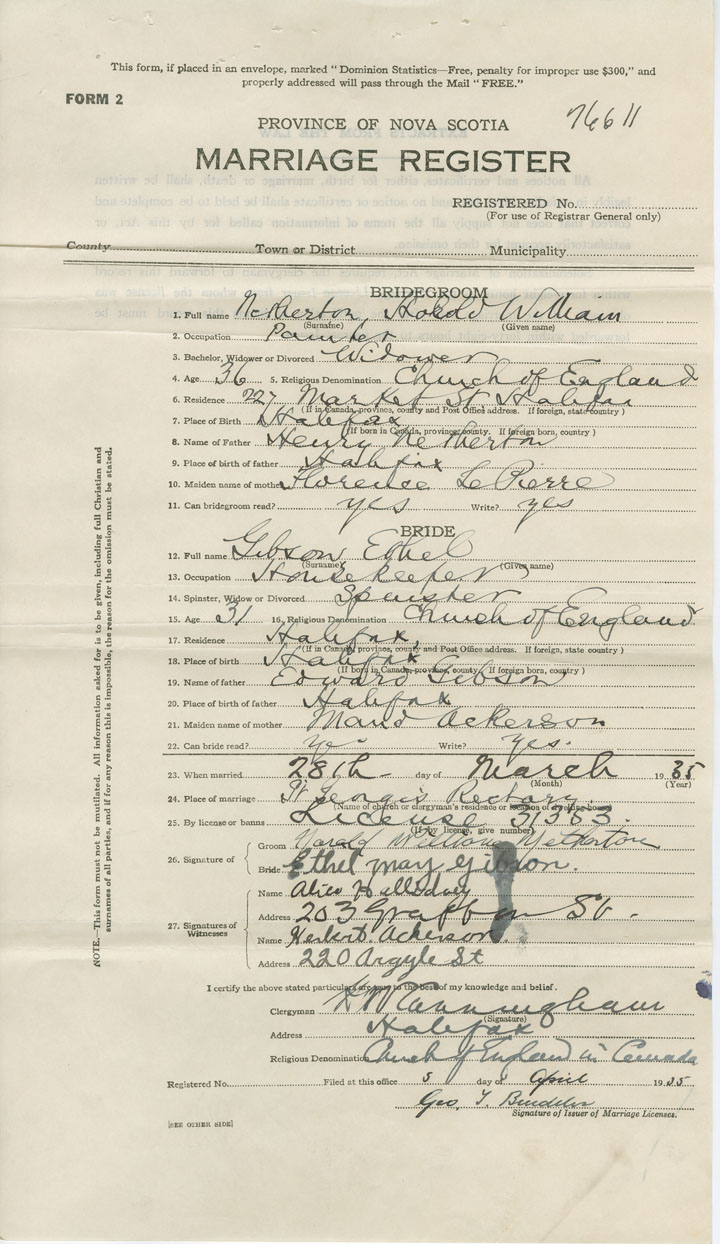 This form, if placed in an envelope, marked "Dominion Statistics—Free, penalty for improper use $300," and
properly addressed will pass through the Mail "FREE."
FORM 2
76611
PROVINCE OF NOVA SCOTIA
MARRIAGE REGISTER
REGISTERED No.
(For use of Registrar General only)
County Town or District Municipality
BRIDEGROOM
1. Full name Netherton, Harold William
(Surname) (Given name)
2. Occupation Painter
3. Bachelor, Widower or Divorced Widower
4. Age 36 5. Religious Denomination Church of England
6. Residence 227 Market St Halifax
(If in Canada, province, county and Post Office address. If foreign, state country)
7. Place of Birth Halifax
(If born in Canada, province, county. If foreign born, country)
8. Name of Father Henry Netherton
9. Place of birth of father Halifax
10. Maiden name of mother Florence LePierre
11. Can bridegroom read? yes Write? yes
BRIDE
12. Full name Gibson Ethel
(Surname) (Given name)
13. Occupation Housekeeper
14. Spinster, Widow or Divorced Spinster
15. Age 31 16. Religious Denomination Church of England
17. Residence Halifax,
(If in Canada, province, county and Post Office address. If foreign, state country)
18. Place of birth Halifax
(If born in Canada, province, county. If foreign born, country)
19. Name of father Edward Gibson
20. Place of birth of father Halifax
21. Maiden name of mother Maud Ackerson
22. Can bride read? yes Write? yes.
23. When married 28th day of March 1935
(Month) (Year)
24. Place of marriage St Georges Rectory
(Name of church or clergyman's residence or
25. By license or banns License 31383
(If by license, give number)
26. Signature of
Groom Harold William Netherton
Bride Ethel may Gibson.
27. Signatures of Witnesses
Name Alice Halliday
Address 203 Grafton St.
Name Herbert. Ackerson.
Address 220 Argyle St
I certify the above stated particulars are true to the best of my knowledge and belief.
Clergyman H W Cunningham
(Signature)
Address Halifax
Religious Denomination Church of England in Canada
Registered No. Filed at this office 5 day of April 1935
Geo. T.
Signature of Issuer of Marriage Licenses.
[SEE OTHER SIDE]
NOTE.—This form must not be mutilated. All information asked for is to be given, including full Christian and
surnames of all parties, and if for any reason this is impossible, the reason for the omission must be stated.